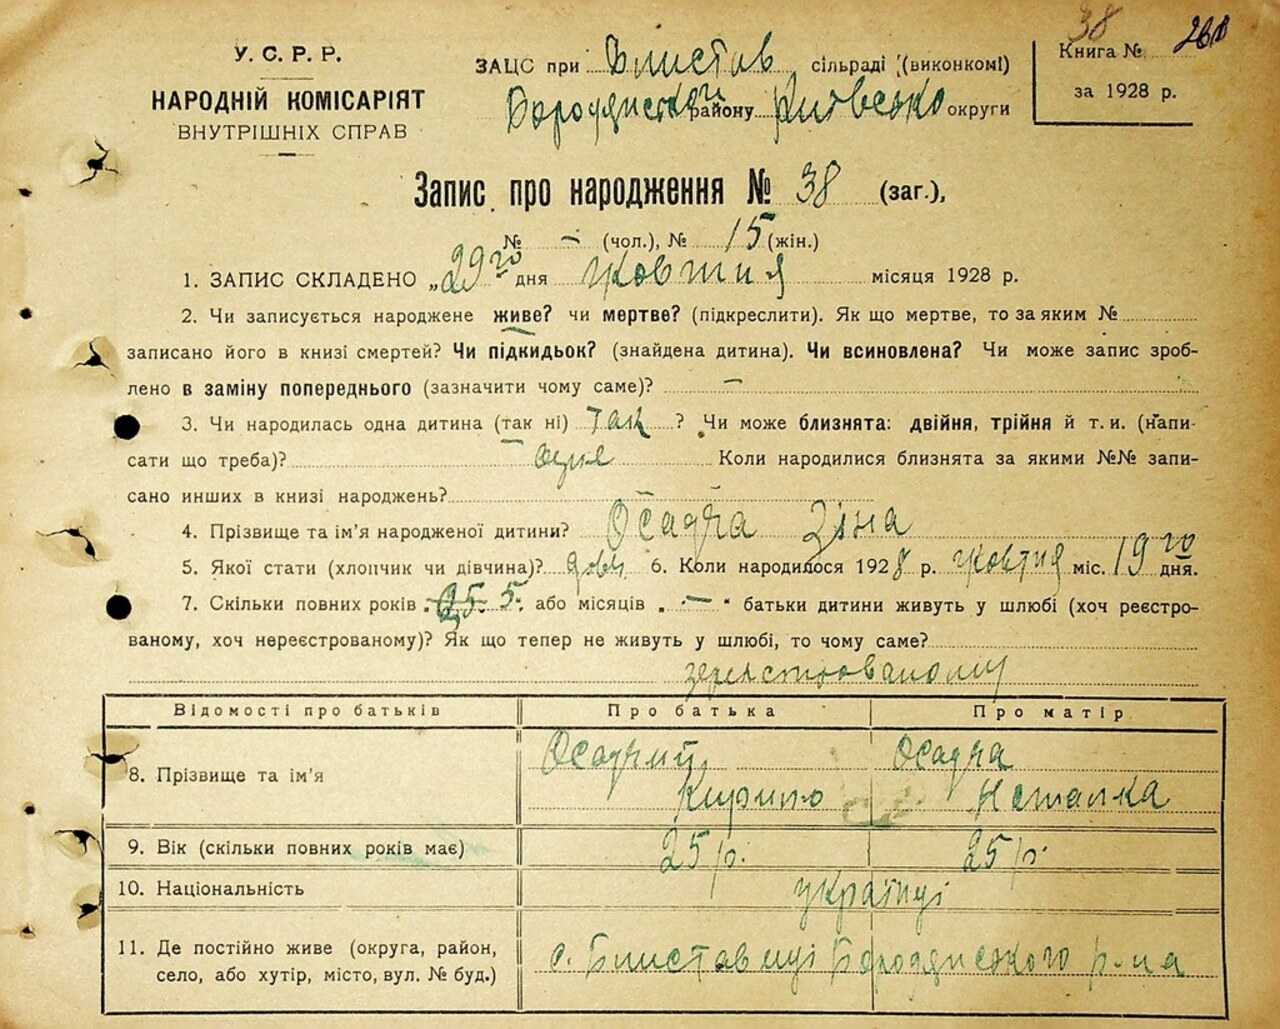 У. С. Р. Р.
НАРОДНІЙ КОМІСАРІЯТ
ВНУТРІШНІХ СПРАВ
ЗАЦС при Блистав сільраді (виконкомі)
Бородянськой району Київсько округи
38
Книга №
за 1928 р.
Запис про народження № 38 (заг.),
№ — (чол.), № 15 (жін.)
1. ЗАПИС СКЛАДЕНО „29го дня жовтня місяця 1928 р.
2. Чи записується народжене живе? чи мертве? (підкреслити). Як що мертве, то за яким №
записано його в книзі смертей? Чи підкидьок? (знайдена дитина). Чи всиновлена? Чи може запис зроб-
лено в заміну попереднього (зазначити чому саме)? —
3. Чи народилась одна дитина (так ні) так ? Чи може близнята: двійня, трійня й т. и. (напи-
сати що треба)? одна Коли народилися близнята за якими №№ запи-
сано инших в книзі народжень?
4. Прізвище та ім'я народженої дитини? Осадча Зіна
5. Якої статі (хлопчик чи дівчина)? дівч. 6. Коли народилося 1928 р. жовтня міс. 19го дня.
7. Скільки повних років 5. або місяців — батьки дитини живуть у шлюбі (хоч реєстро-
ваному, хоч нереєстрованому)? Як що тепер не живуть у шлюбі, то чому саме?
зереєстрованому
Відомості про батьків Про батька Про матір
8. Прізвище та ім'я Осадчий Кирило Осадча Наталка
9. Вік (скільки повних років має) 25 р. 25 р.
10. Національність українці
11. Де постійно живе (округа, район,
село, або хутір, місто, вул. № буд.) с. Блиставиці Бородянського р-на